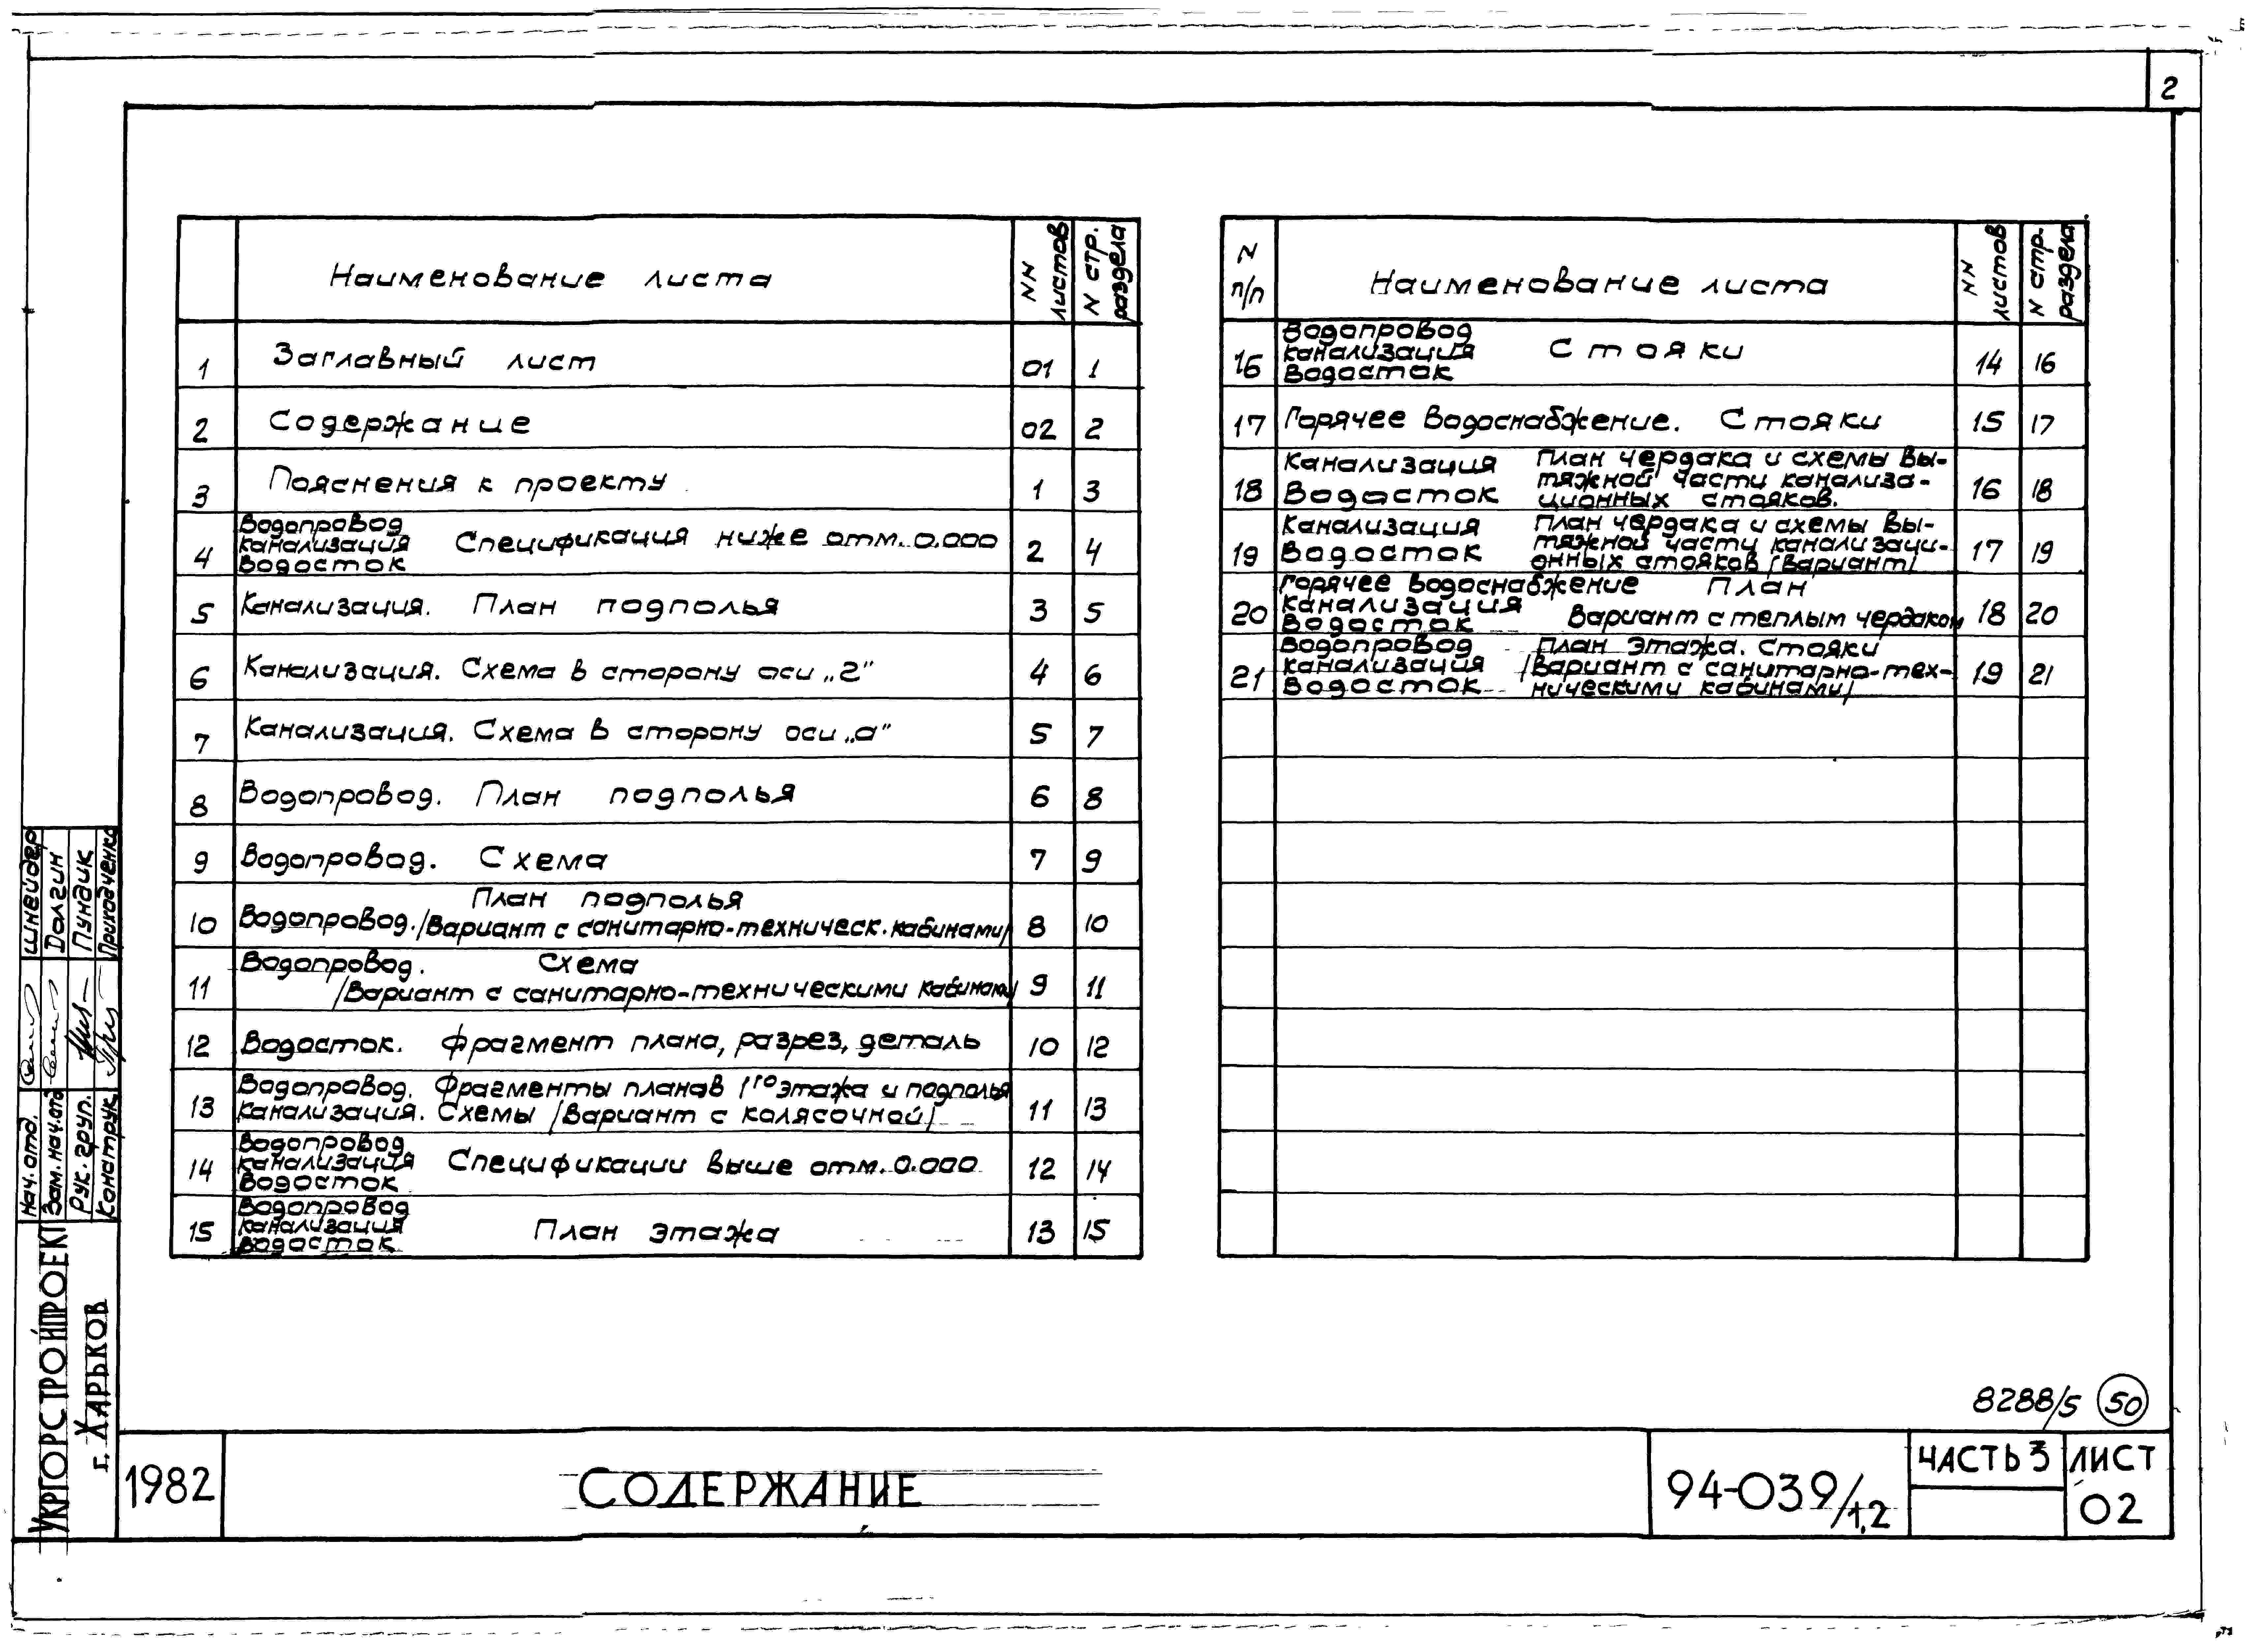 2
Наименование листа NN листов N стр. раздела
1 Заглавный лист 01 1
2 Содержание 02 2
3 Пояснения к проекту 1 3
Водопровод
4 Канализация Спецификация ниже отм. 0.000 2 4
Водосток
5 Канализация. План подполья 3 5
6 Канализация. Схема в сторону оси „г" 4 6
7 Канализация. Схема в сторону оси „а" 5 7
8 Водопровод. План подполья 6 8
9 Водопровод. Схема 7 9
План подполья
10 Водопровод. /Вариант с санитарно-техническ. кабинами/ 8 10
Водопровод. Схема
11 /Вариант с санитарно-техническими кабинами/ 9 11
12 Водосток. Фрагмент плана, разрез, деталь 10 12
Водопровод. Фрагменты планов 1го этажа и подполья
13 Канализация. Схемы /Вариант с колясочной/ 11 13
Водопровод
14 Канализация Спецификации выше отм. 0.000 12 14
Водосток
Водопровод
15 Канализация План этажа 13 15
Водосток
N п/п Наименование листа NN листов N стр. раздела
Водопровод
16 Канализация Стояки 14 16
Водосток
17 Горячее водоснабжение. Стояки 15 17
Канализация План чердака и схемы вы-
18 Водосток тяжной части канализа- 16 18
ционных стояков.
Канализация План чердака и схемы вы-
19 Водосток тяжной части канализаци- 17 19
онных стояков /Вариант/
Горячее водоснабжение План
20 Канализация Вариант с теплым чердаком 18 20
Водосток
Водопровод План этажа. Стояки
21 Канализация /Вариант с санитарно-тех- 19 21
Водосток ническими кабинами/
Нач. отд. Шнейдер
Зам. нач. отд Долгин
Рук. груп. Пундик
Конструк. Приходченко
УКРГОРСТРОЙПРОЕКТ
г. ХАРЬКОВ
8288/5 50
1982 СОДЕРЖАНИЕ 94-039/1,2 ЧАСТЬ 3 ЛИСТ
02